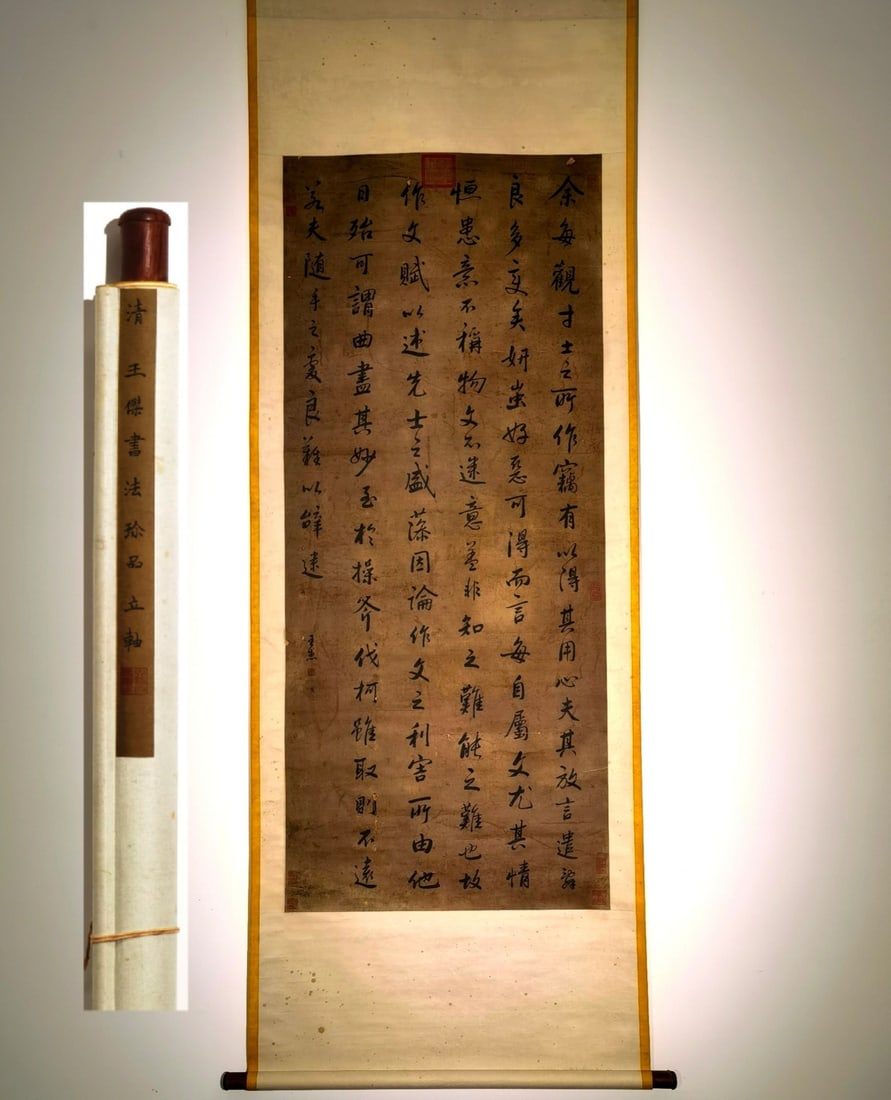 余每觀才士之所作竊有以得其用心夫其放言遣辭
良多变矣妍蚩好惡可得而言每自屬文尤其情
恒患意不稱物文不逮意蓋非知之難能之難也故
作文賦以述先士之盛藻因論作文之利害所由他
日殆可謂曲盡其妙至於操斧伐柯雖取則不遠
若夫随手之變良難以辭逮
王杰
清 王傑書法珍品立軸